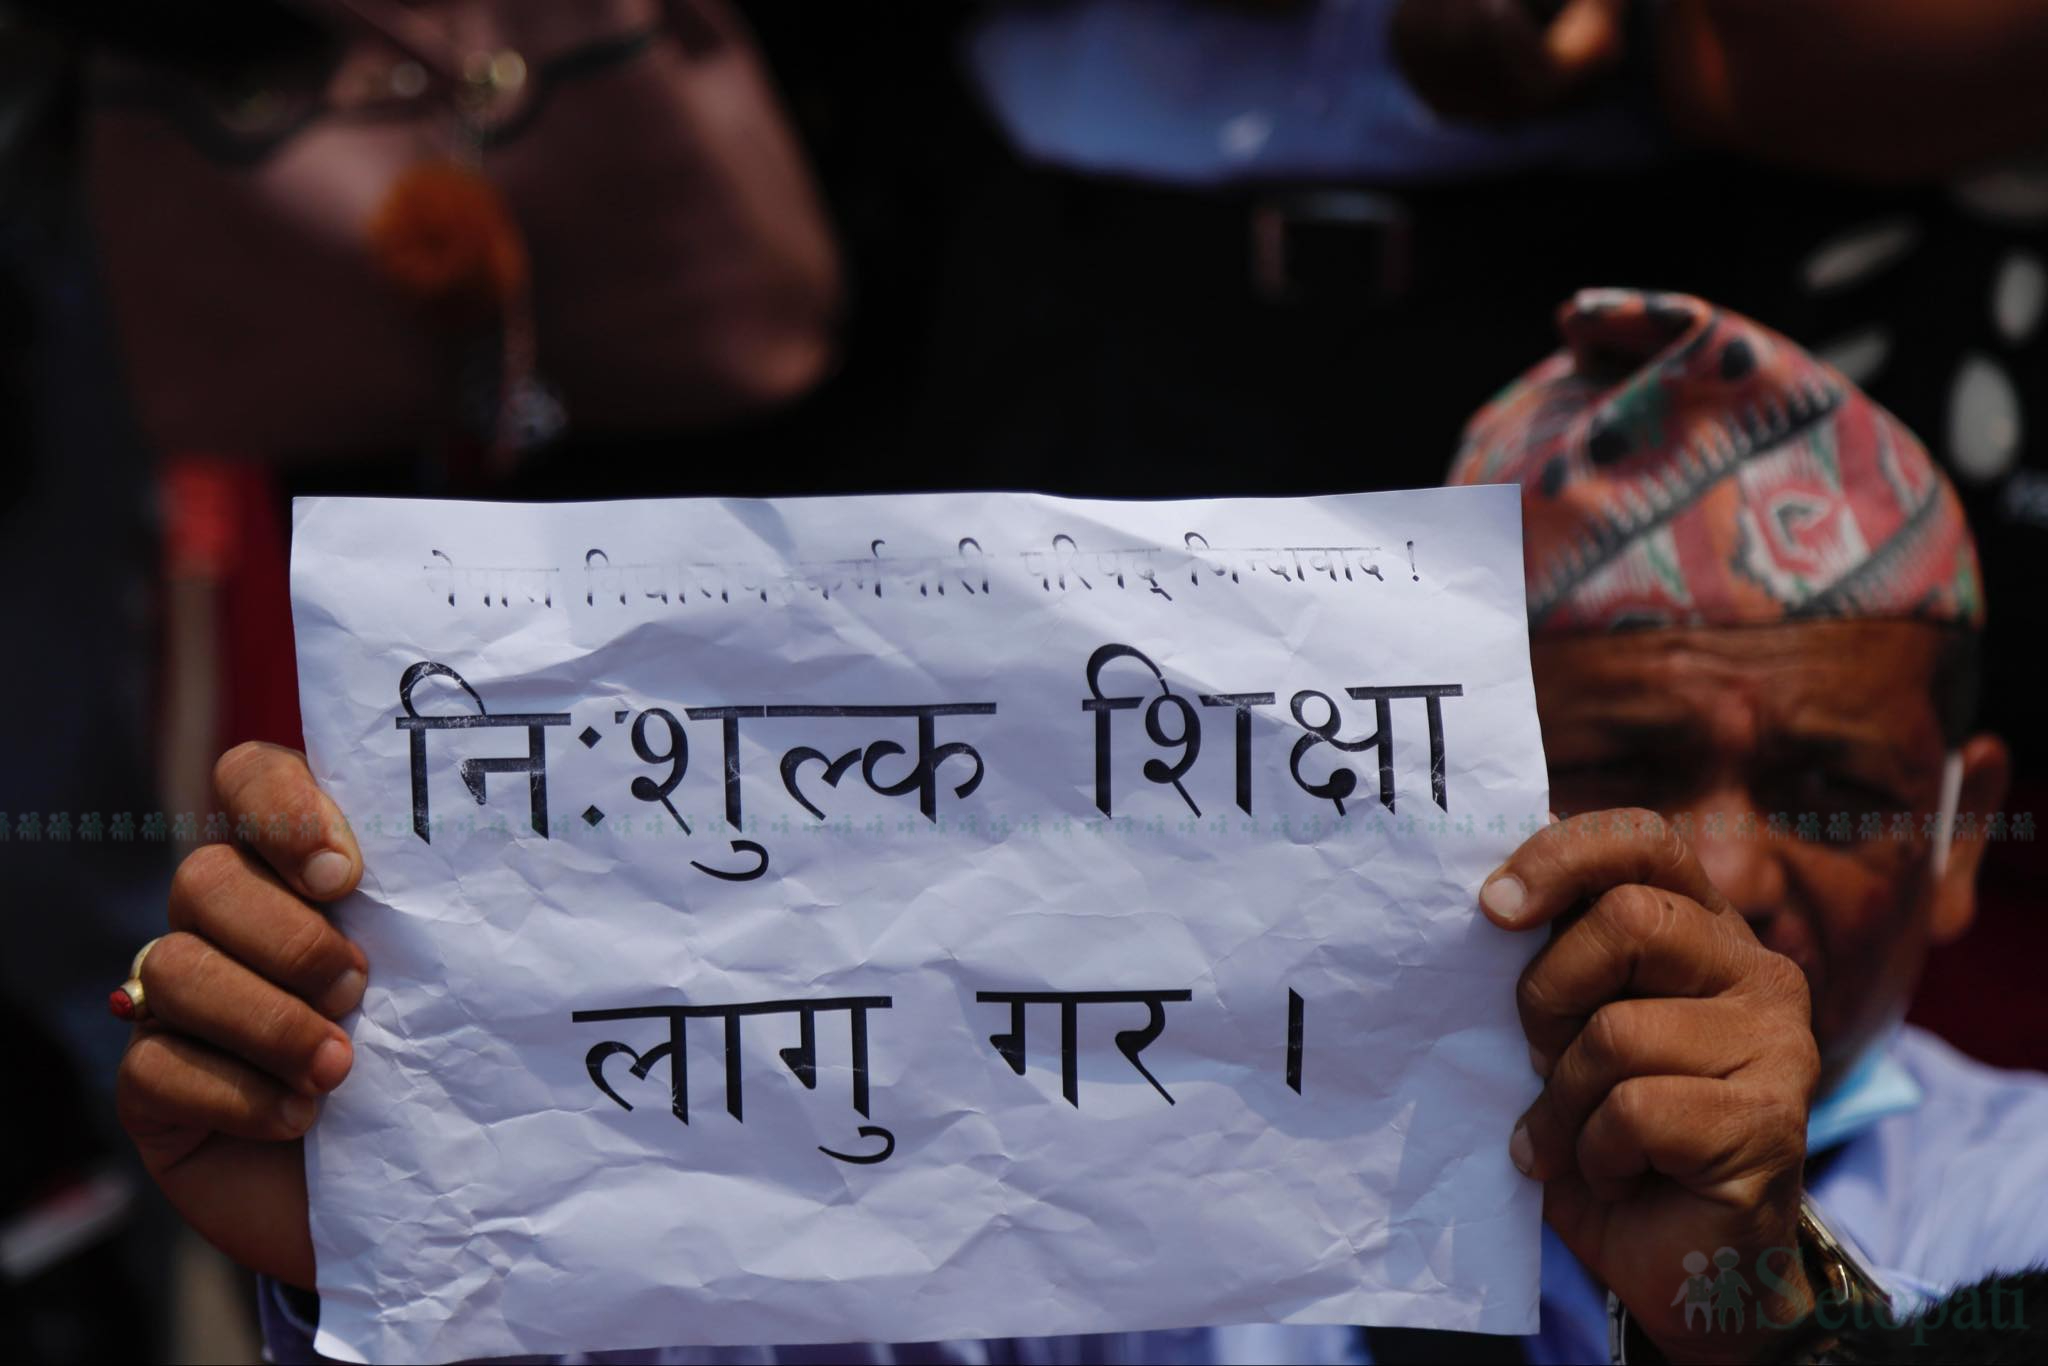 नेपाल विद्यालय कर्मचारी परिषद् जिन्दावाद !
निःशुल्क शिक्षा
लागु गर ।
Setopati